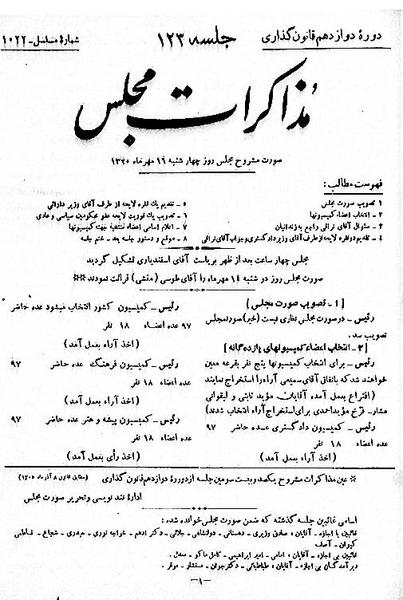 دورهٔ دوازدهم قانون گذاری
جلسه ۱۲۳
شمارهٔ مسلسل - ۱۰۲۲
مذاکرات مجلس
صورت مشروح مجلس روز چهارشنبه ۱۶ مهر ماه ۱۳۲۰
فهرست مطالب:
۱ تصویب صورت مجلس
۲ - انتخاب اعضاء کمیسیونها
۳ - سئوال آقای نراقی راجع به زندانیان
۴ - تقدیم دو فقره لایحه از طرف آقای وزیر دادگستری و جواب آقای نراقی
۵ - تقدیم یک فقره لایحه از طرف آقای وزیر دارائی
۶ - تصویب یک فوریت لایحه عفو محکومین سیاسی و عادی
۷ - اعلام اسامی اعضاء منتخبه جهت کمیسیونها
۸ - موقع و دستور جلسه بعد - ختم جلسه
مجلس چهار ساعت بعد از ظهر بریاست آقای اسفندیاری تشکیل گردید
صورت مجلس روز دو شنبه ۱۴ مهر ماه را آقای طوسی (منشی) قرائت نمودند
[ ۱ - تصویب صورت مجلس ]
رئیس - در صورت مجلس نظری نیست (خیر) صورتمجلس
تصویب شد.
[ ۲ - انتخاب اعضاء کمیسیونهای یازده گانه ]
رئیس - برای انتخاب کمیسیونها پنج نفر بقرعه معین
خواهند شد که باتفاق آقای سمیعی آراء را استخراج نمایند
(اقتراع بعمل آمده آقایان مؤید ثابتی و لیقوانی
مشار. فرخ مؤید احمدی برای استخراج آراء انتخاب شدند)
رئیس - کمیسیون دادگستری عده حاضر ۹۷
عده اعضاء ۱۸ نفر
(اخذ آراء بعمل آمد)
رئیس - کمیسیون کشور انتخاب میشود عده حاضر
۹۷ عده اعضاء ۱۸ نفر
(اخذ آراء بعمل آمد)
رئیس - کمیسیون فرهنگ عده حاضر ۹۷
عده اعضاء ۱۸ نفر
(اخذ آراء بعمل آمد)
رئیس - کمیسیون پیشه و هنر عده حاضر ۹۷
عده اعضاء ۱۸ نفر
(اخذ رأی بعمل آمد)
عین مذاکرات مشروح یکصد و بیست و سومین جلسه از دورهٔ دوازدهم قانون گذاری
(مطابق قانون ۸ آذرماه ۱۳۰۵)
ادارهٔ تند نویسی و تحریر صورت مجلس
اسامی غائبین جلسه گذشته که ضمن صورت مجلس خوانده شده:
غائبین با اجازه - آقایان: صادق وزیری - دهستانی - دولتشاهی - جلائی - دکتر ادهم - خواجه نوری - شجاع - فاطمی
کیوان - آصف
غائبین بی اجازه - آقایان: امامی - امیر ابراهیمی - کامل ماکو - معدل.
دیر آمدگان بی اجازه - آقایان: طباطبائی - دکتر جوان - مستشار - موقر.
-۱-